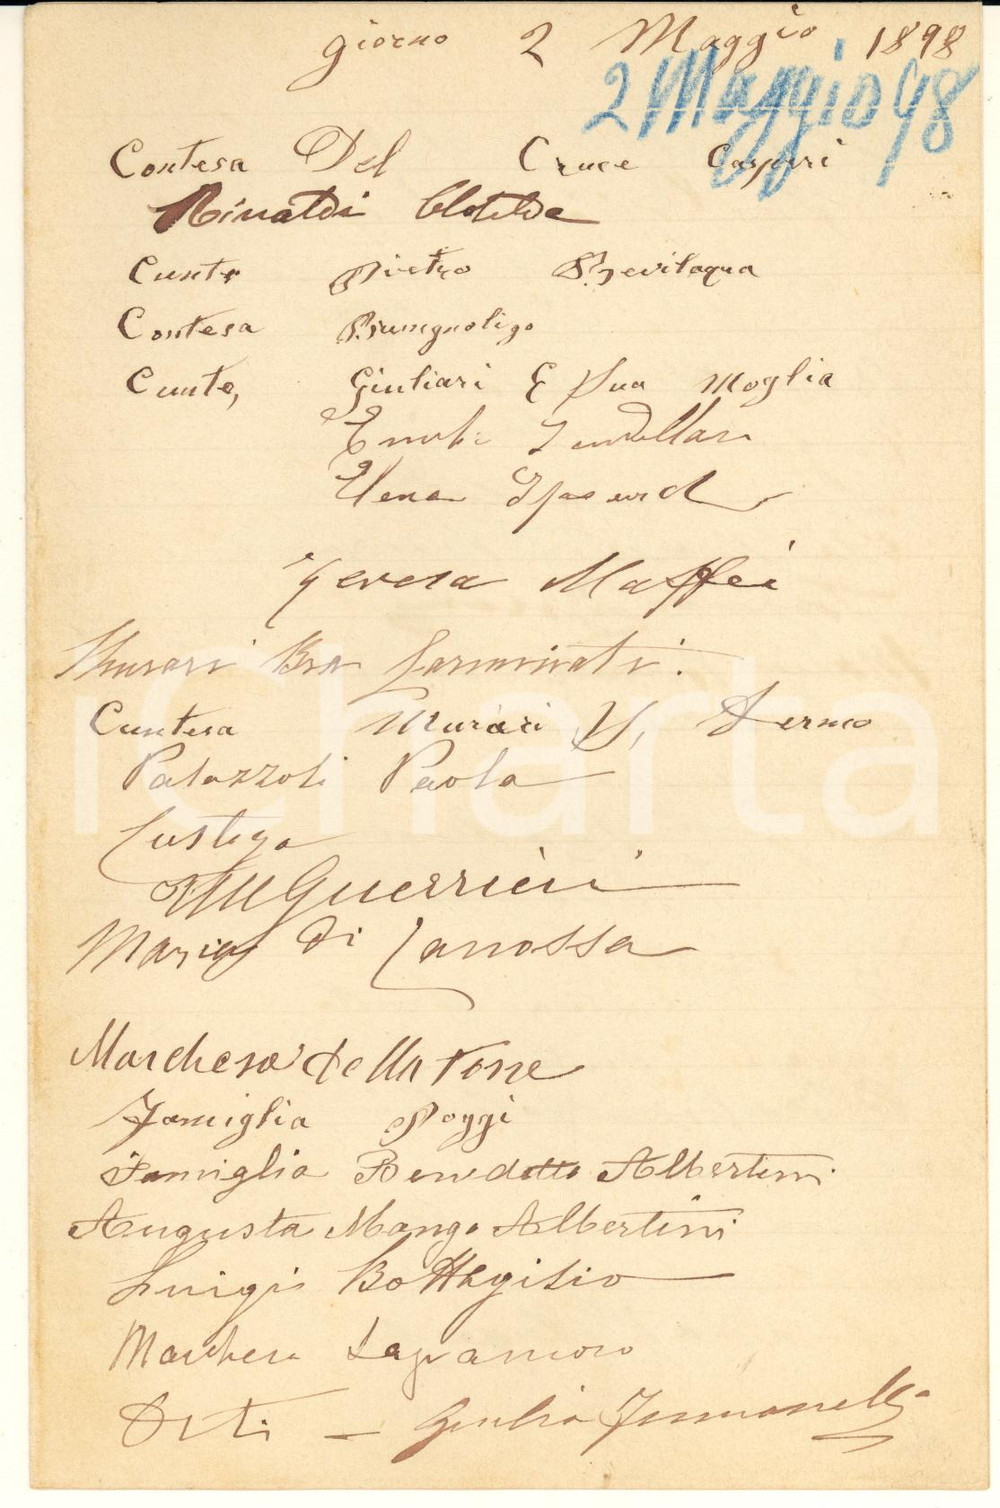 giorno 2 Maggio 1898
2 Maggio 98
Contesa Del Cruce Caspari
Rinaldi Clotilde
Cunte Pietro Bevilaqua
Contesa Brungnoligo
Cunte, Giuliari E Sua Moglia
Elena
Teresa Maffei
Murari Bra
Cuntesa Murari Fermo
Palazzoli Paola
Custoza
Guerrieri
Maria di Canossa
Marchesa Della Torre
Famiglia Poggi
Famiglia Benedetto Albertini
Augusta Mango Albertini
Luigi Bottagisio
Marchesa Sagramoso
Orti - Giulia
iCharta